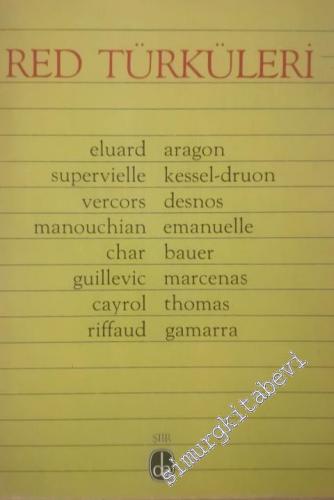 RED TÜRKÜLERİ
eluard aragon
supervielle kessel-druon
vercors desnos
manouchian emanuelle
char bauer
guillevic marcenas
cayrol thomas
riffaud gamarra
ŞİİR
de
simurgkitabevi.com